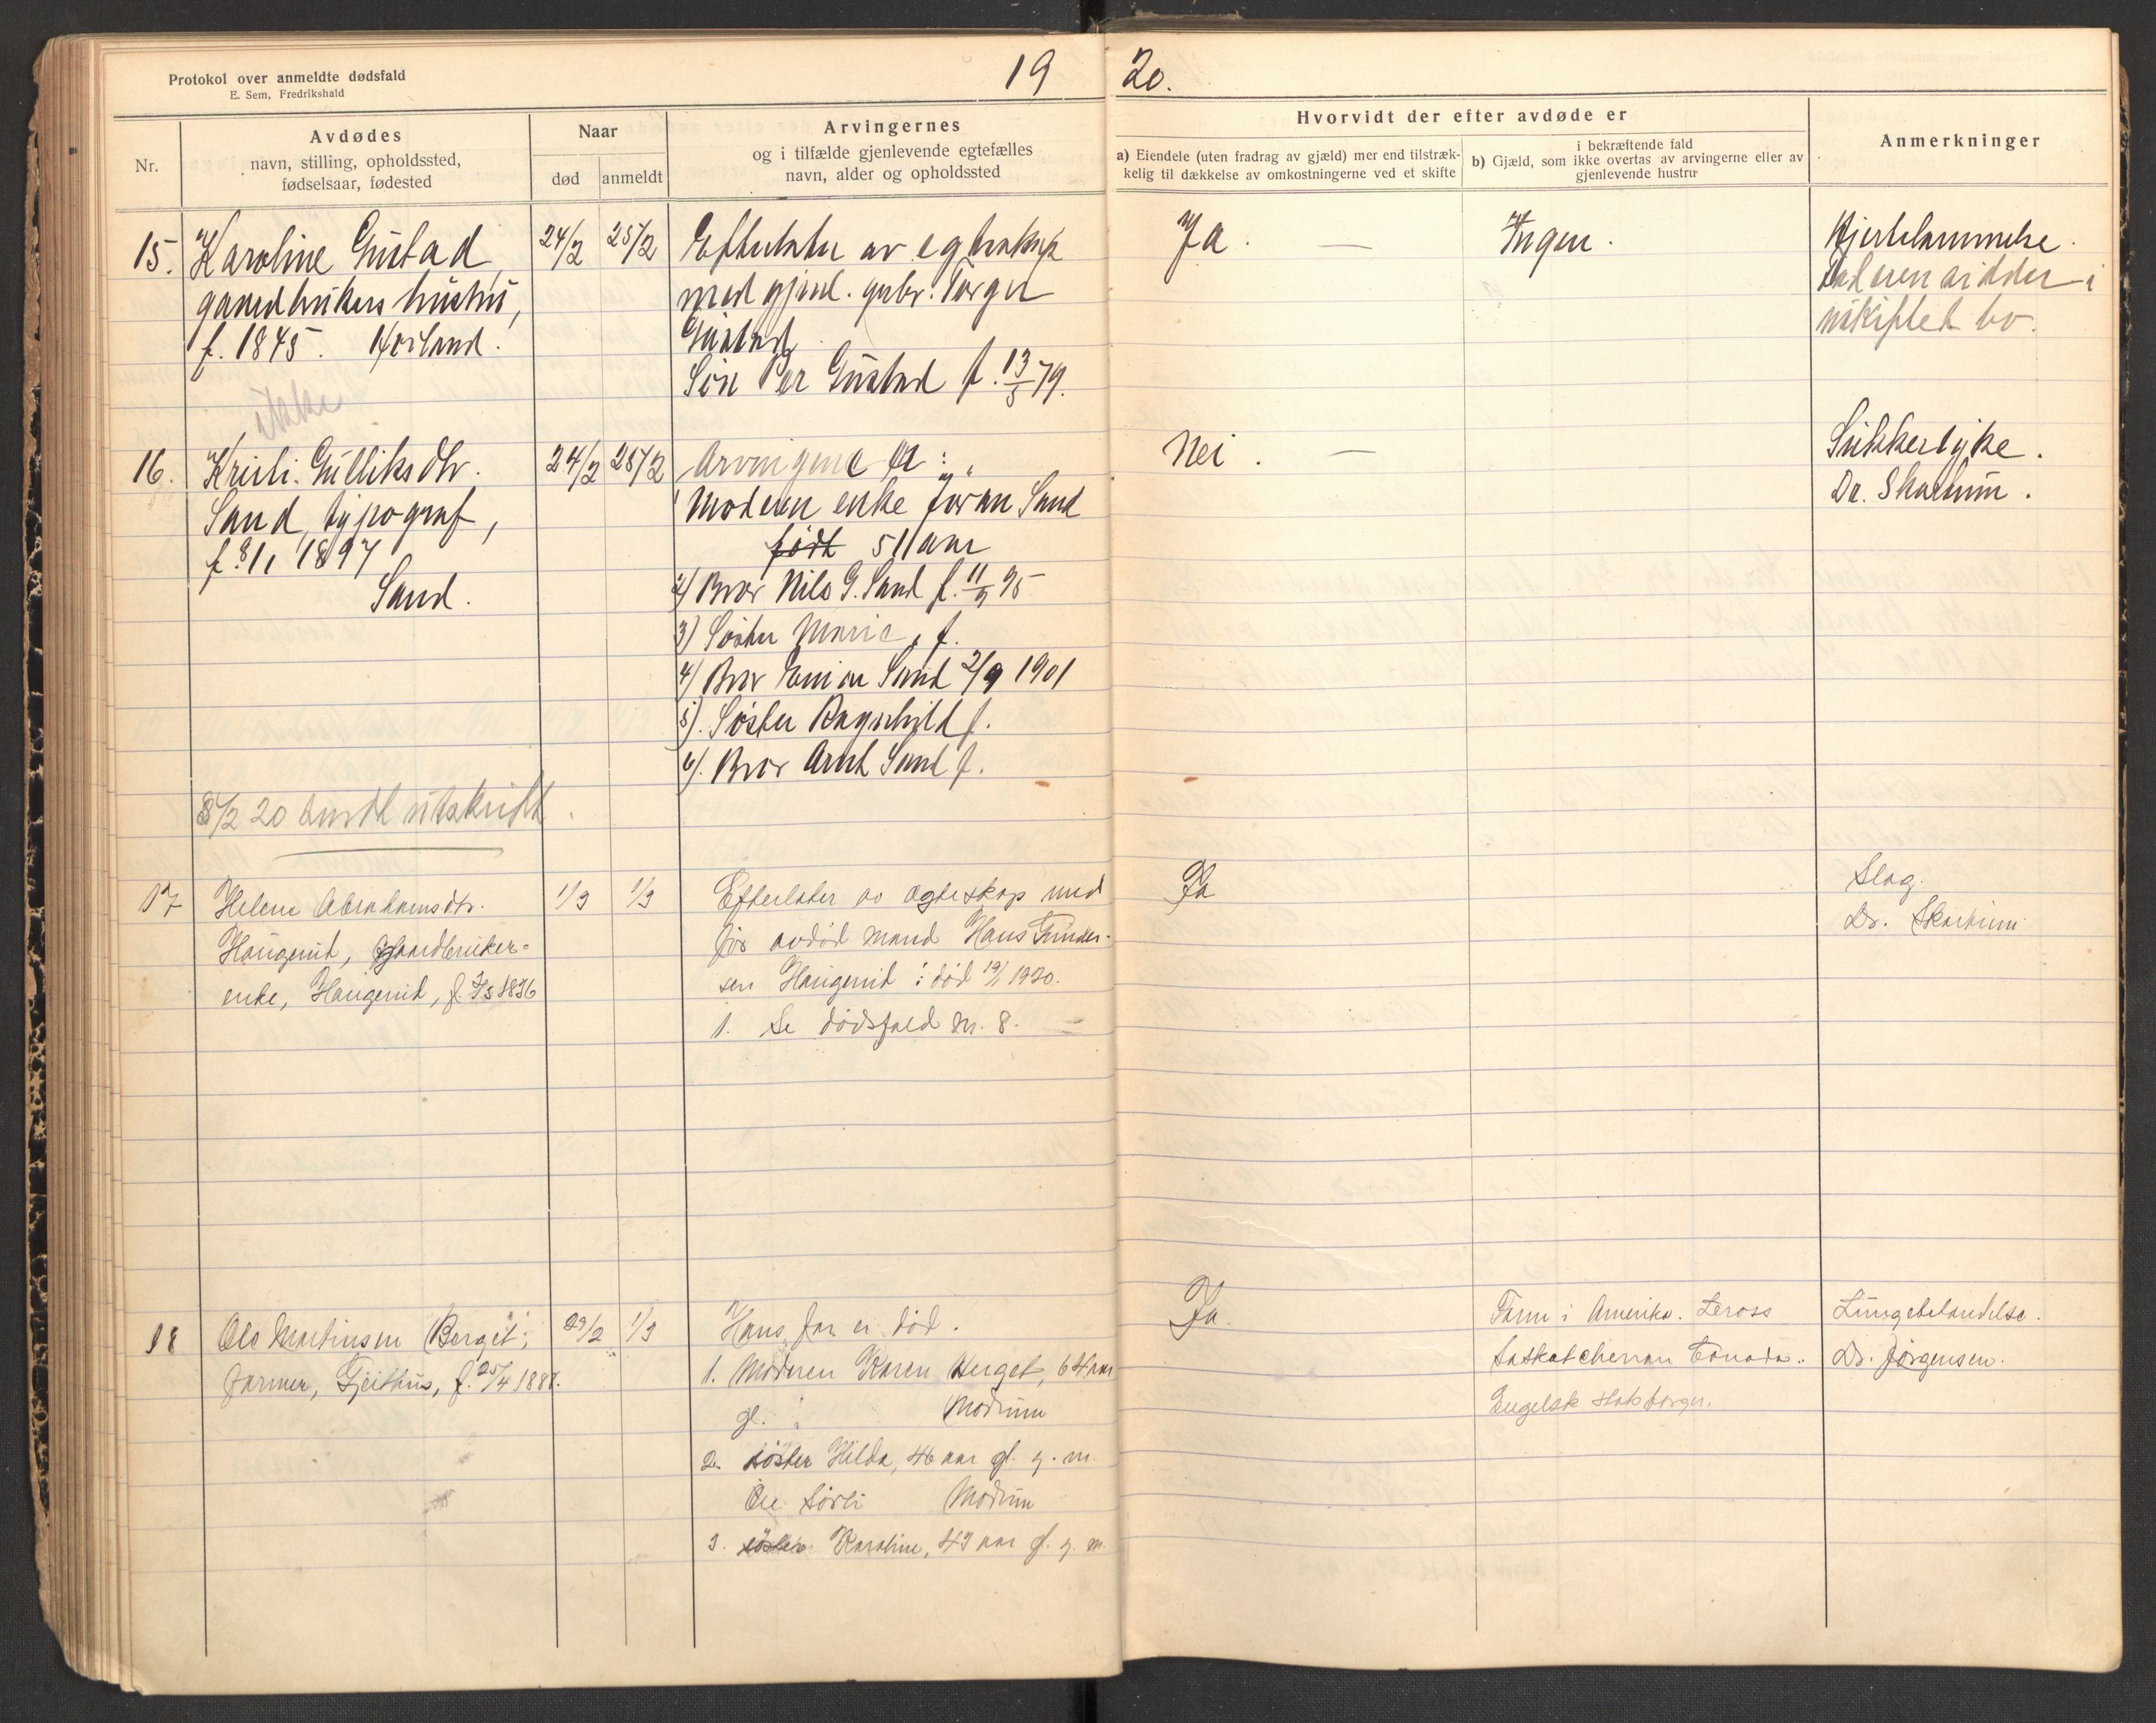 Protokol over anmeldte dødsfald
E. Sem, Fredrikshald
19 20.
Nr.
Avdødes
navn, stilling, opholdssted,
fødselsaar, fødested
Naar
død
anmeldt
Arvingernes
og i tilfælde gjenlevende egtefælles
navn, alder og opholdssted
Hvorvidt der efter avdøde er
a) Eiendele (uten fradrag av gjæld) mer end tilstræk-
kelig til dækkelse av omkostningerne ved et skifte
i bekræftende fald
b) Gjæld, som ikke overtas av arvingerne eller av
gjenlevende hustru
Anmerkninger
15. Karoline Gustad
gaardbrukers hustru,
f. 1845.
24/2 25/2
Efterlater av egteskap
med gjenl. gbr. Torger
Gustad
Søn Per Gustad f. 13/5 79.
Ja. —
Ingen.
Hjertelammelse.
i
uskiftet bo.
ikke
16. Kristi Gulliksdtr.
Sand, typograf,
f. 1897
Sand.
24/2 25/2
Arvingene er:
1 Moderen enke Joran Sand
født 51 aar
2) Bror Nils G. Sand f. 11/9 95
3) Søster Marie, f.
4) Bror Sand 2/9 1901
5). Søster Ragnhild f.
6). Bror Arnt Sand f.
Nei. —
Sukkersyke.
Dr. Skartum.
20 sendt utskrift
17 Helene Abrahamsdtr.
Haugerud, Gaardbruker-
enke, Haugerud, f. 1836
1/3 1/3
Efterlater av ægteskap med
før avdød mand Hans Gunder-
sen Haugerud: død 19/1 1920.
1. Se dødsfald nr. 8. —
Ja
Slag.
Dr. Skartum
18 Ole Martinsen Berget,
farmer, Gjeithus, f. 25/4 1888.
29/2 1/3
Hans far er død.
1. Moderen Karen Berget, 64 aar
gl. Modum
2. søster Hilda, 46 aar gl. g. m.
Ole Sørli Modum
3. søster Karoline, 43 aar gl. g. m.
Ja.
Farm i Amerika. Leross
Saskatchewan Canada.
Engelsk statsborger.
Lungebetændelse.
Dr. Jørgensen.